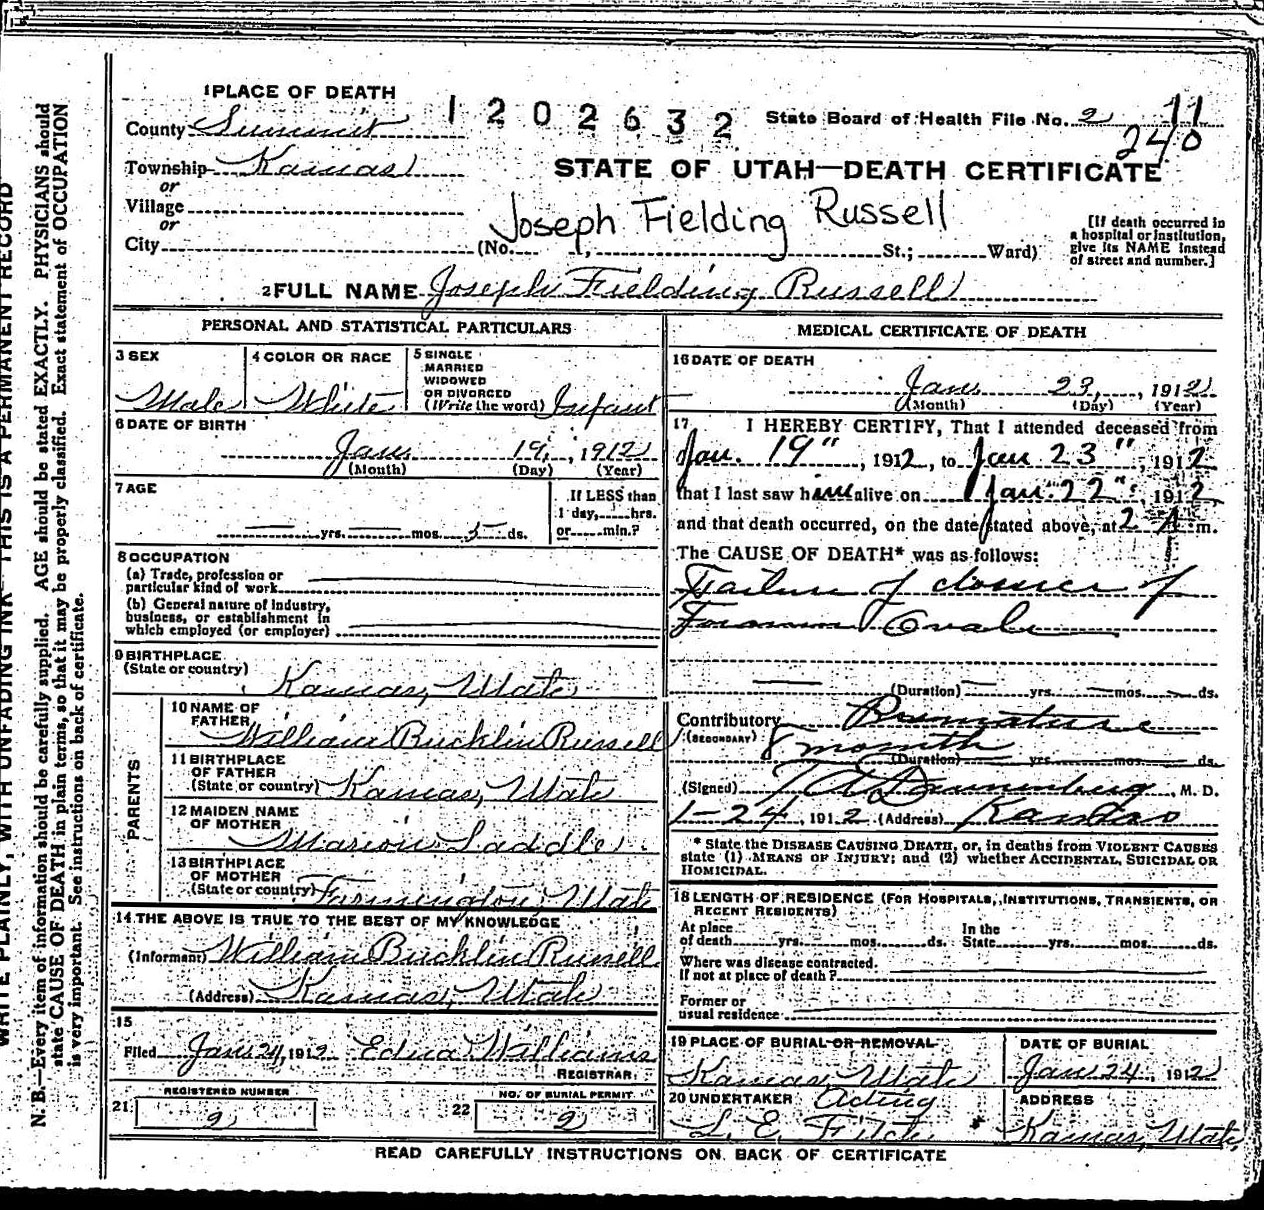 1 PLACE OF DEATH
1 2 0 2 6 3 2
State Board of Health File No. 2 11
240
County Summit
Township Kamas
or
Village
or
City
STATE OF UTAH—DEATH CERTIFICATE
Joseph Fielding Russell
(No. St.; Ward)
[If death occurred in
a hospital or institution,
give its NAME instead
of street and number.]
2 FULL NAME Joseph Fielding Russell
PERSONAL AND STATISTICAL PARTICULARS
3 SEX
Male
4 COLOR OR RACE
White
5 SINGLE
MARRIED
WIDOWED
OR DIVORCED
(Write the word) Infant
6 DATE OF BIRTH
Jan. 19, 1912
(Month) (Day) (Year)
7 AGE
— yrs. — mos. 5 ds.
If LESS than
1 day, hrs.
or min.?
8 OCCUPATION
(a) Trade, profession or
particular kind of work
(b) General nature of industry,
business, or establishment in
which employed (or employer)
9 BIRTHPLACE
(State or country)
Kamas, Utah
PARENTS
10 NAME OF
FATHER
William Bucklin Russell
11 BIRTHPLACE
OF FATHER
(State or country) Kamas, Utah
12 MAIDEN NAME
OF MOTHER
Marion Laddle
13 BIRTHPLACE
OF MOTHER
(State or country) Farmington, Utah
14 THE ABOVE IS TRUE TO THE BEST OF MY KNOWLEDGE
(Informant) William Bucklin Russell
(Address) Kamas, Utah
15
Filed Jan 24, 1912 Edna Williams
REGISTRAR
21 REGISTERED NUMBER
2
22 NO. OF BURIAL PERMIT
2
MEDICAL CERTIFICATE OF DEATH
16 DATE OF DEATH
Jan. 23, 1912
(Month) (Day) (Year)
17 I HEREBY CERTIFY, That I attended deceased from
Jan. 19", 1912, to Jan 23", 1912
that I last saw him alive on Jan. 22", 1912
and that death occurred, on the date stated above, at 2 A m.
The CAUSE OF DEATH* was as follows:
Failure of closure of
Foramen Ovale
(Duration) — yrs. — mos. — ds.
Contributory Premature
(SECONDARY) 8 month
(Duration) yrs. mos. ds.
(Signed) , M. D.
1-24, 1912 (Address)
* State the DISEASE CAUSING DEATH, or, in deaths from VIOLENT CAUSES
state (1) MEANS OF INJURY; and (2) whether ACCIDENTAL, SUICIDAL OR
HOMICIDAL.
18 LENGTH OF RESIDENCE (FOR HOSPITALS, INSTITUTIONS, TRANSIENTS, OR
RECENT RESIDENTS)
At place
of death yrs. mos. ds.
In the
State yrs. mos. ds.
Where was disease contracted.
If not at place of death?
Former or
usual residence
19 PLACE OF BURIAL OR REMOVAL
Kamas, Utah
DATE OF BURIAL
Jan 24, 1912
20 UNDERTAKER Acting
L. E. Fitch
ADDRESS
Kamas, Utah
READ CAREFULLY INSTRUCTIONS ON BACK OF CERTIFICATE
WRITE PLAINLY, WITH UNFADING INK—THIS IS A PERMANENT RECORD
N. B.—Every item of information should be carefully supplied. AGE should be stated EXACTLY. PHYSICIANS should
state CAUSE OF DEATH in plain terms, so that it may be properly classified. Exact statement of OCCUPATION
is very important. See instructions on back of certificate.